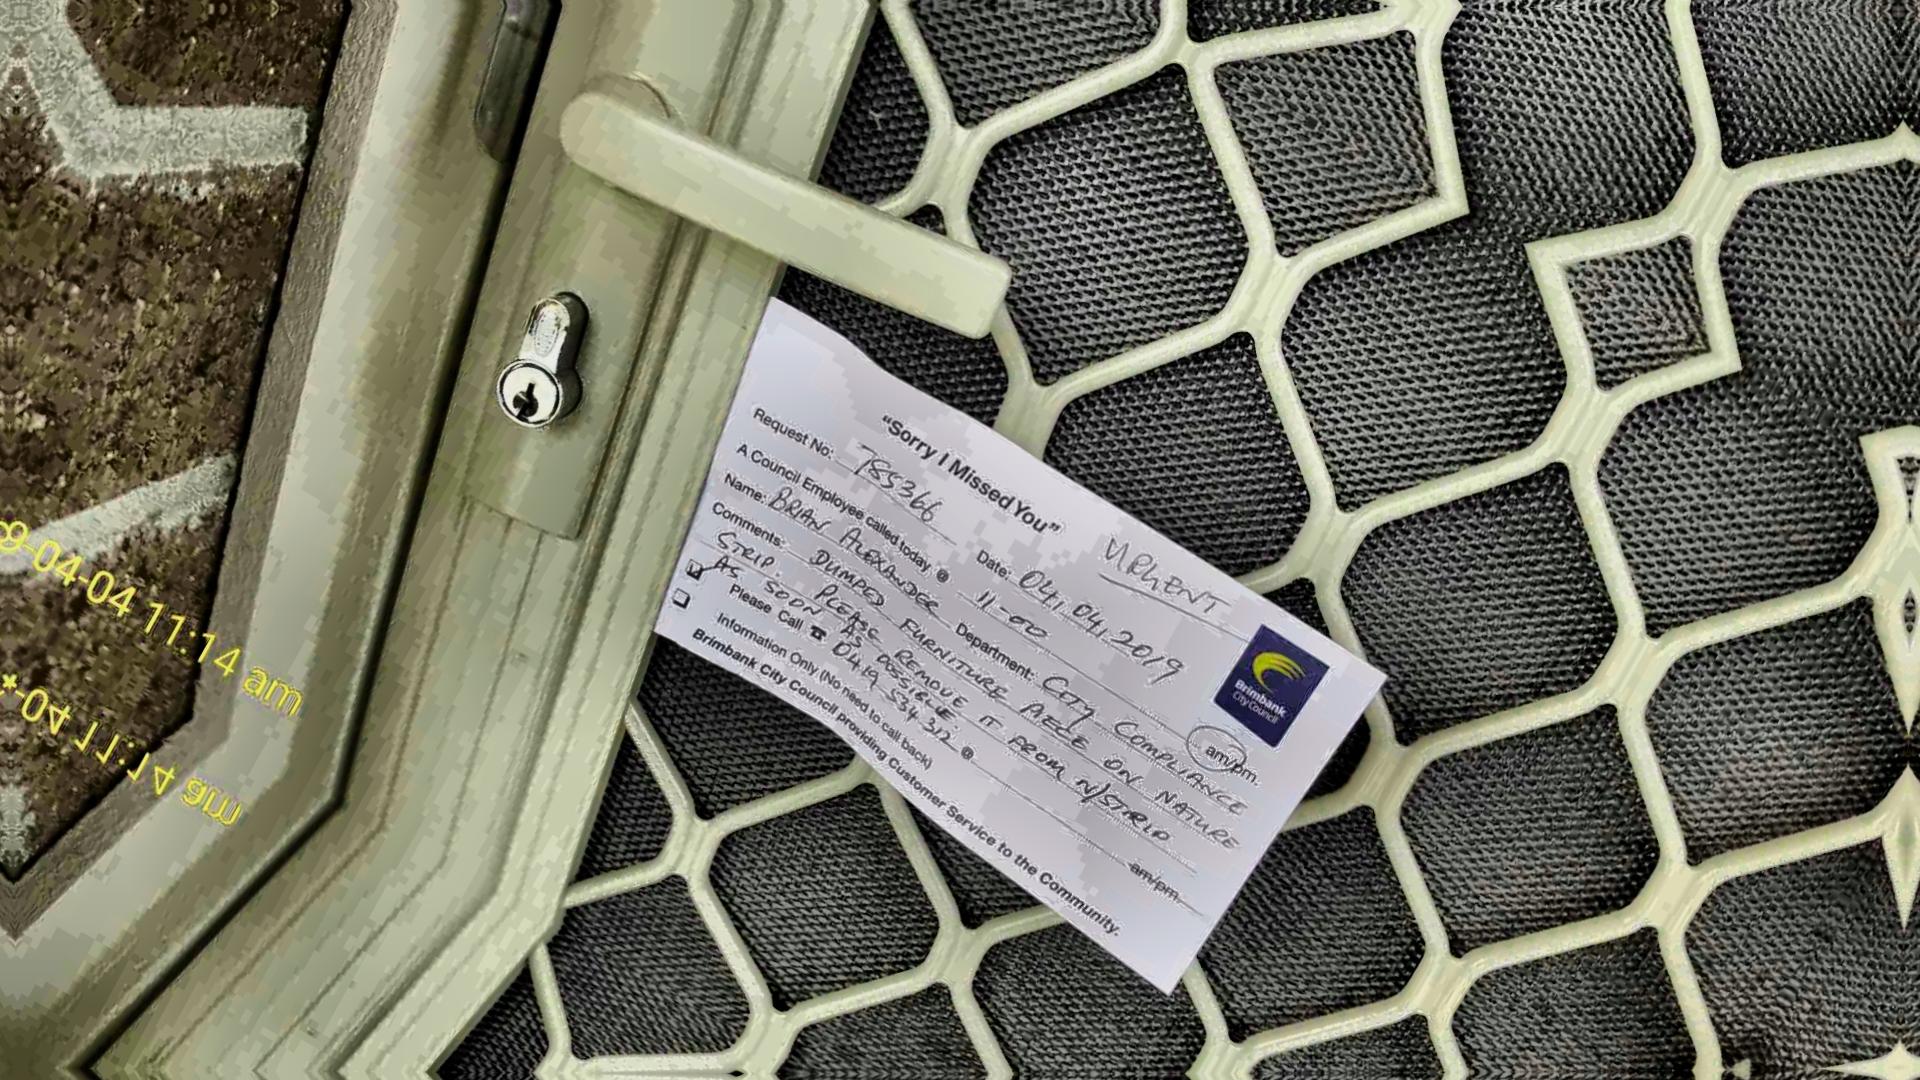 "Sorry I Missed You"
URGENT
Request No: 755366 Date: 04,04,2019
A Council Employee called today @ 11-00 am/pm.
Name: BRIAN ALEXANDER Department: CITY COMPLIANCE
Comments: DUMPED FURNITURE ON NATURE
STRIP. PLEASE REMOVE IT FROM N/STRIP
AS SOON AS POSSIBLE.
Please Call ☎ 0419 534 312 @ am/pm.
Information Only (No need to call back)
Brimbank City Council providing Customer Service to the Community.
Brimbank
City Council
9-04-04 11:14 am